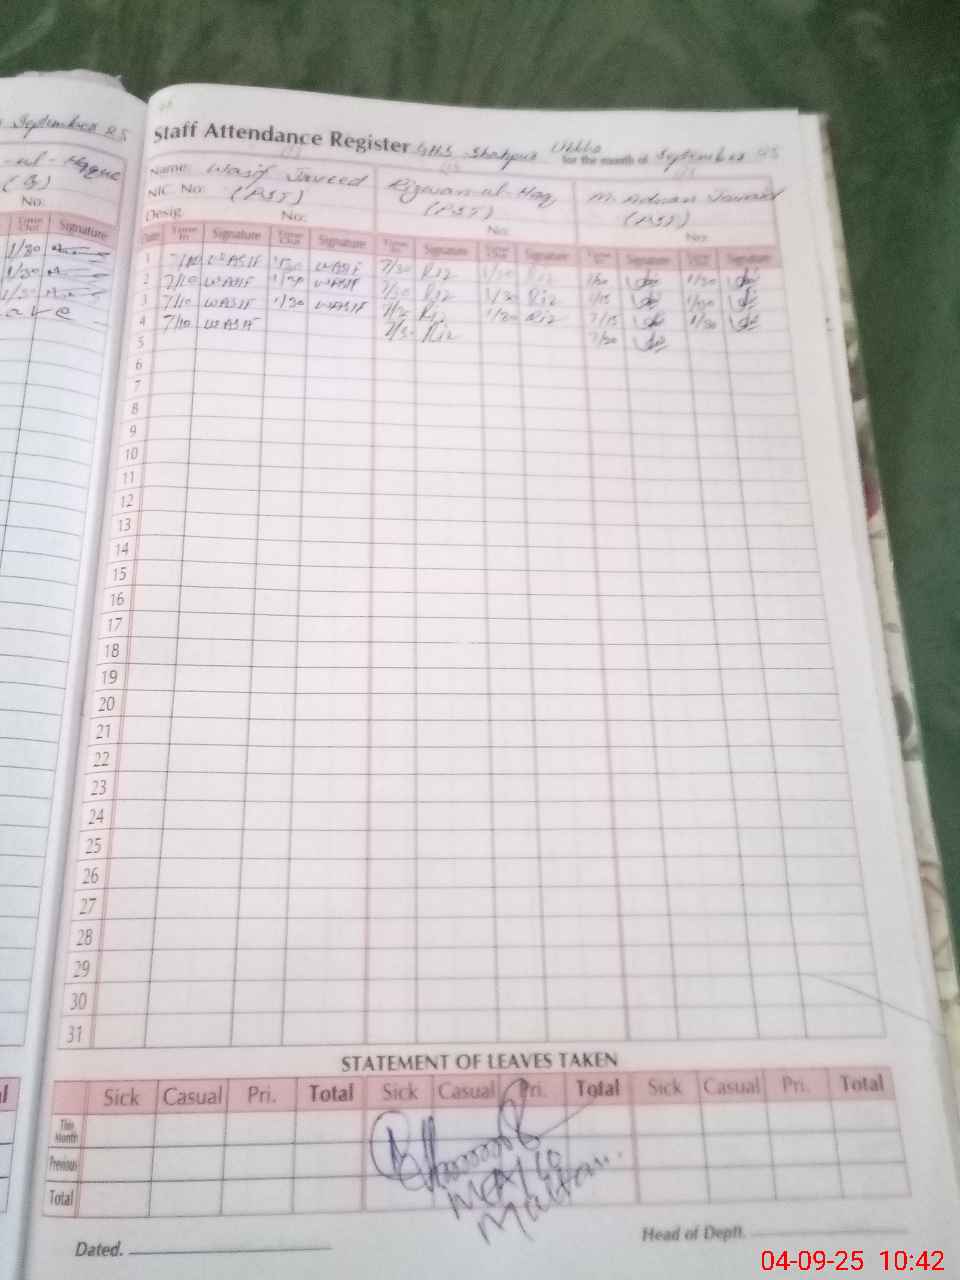 September 25
(G)
No:
Time Out Signature
1/30
1/30
1/30
Staff Attendance Register GHS Shahpur Ubbha for the month of September 25
Name: Wasif Javeed Rizwan-ul-Haq M. Adnan
NIC. No: (PST) (PST) (PST)
Desig. No: No: No:
Date Time In Signature Time Out Signature Time In Signature Time Out Signature Time In Signature Time Out Signature
1 7/10 WASIF 1/30 WASIF 7/30 Riz 1/30 Riz 7/20 1/30
2 7/10 WASIF 1/30 WASIF 7/30 Riz 1/30 Riz 7/15 1/30
3 7/10 WASIF 1/30 WASIF 7/30 Riz 1/30 Riz 7/15 1/30
4 7/10 WASIF 7/30 Riz 7/20
5
6
7
8
9
10
11
12
13
14
15
16
17
18
19
20
21
22
23
24
25
26
27
28
29
30
31
STATEMENT OF LEAVES TAKEN
Sick Casual Pri. Total Sick Casual Pri. Total Sick Casual Pri. Total
This Month
Previous
Total
Multan
Dated.
Head of Deptt.
04-09-25 10:42